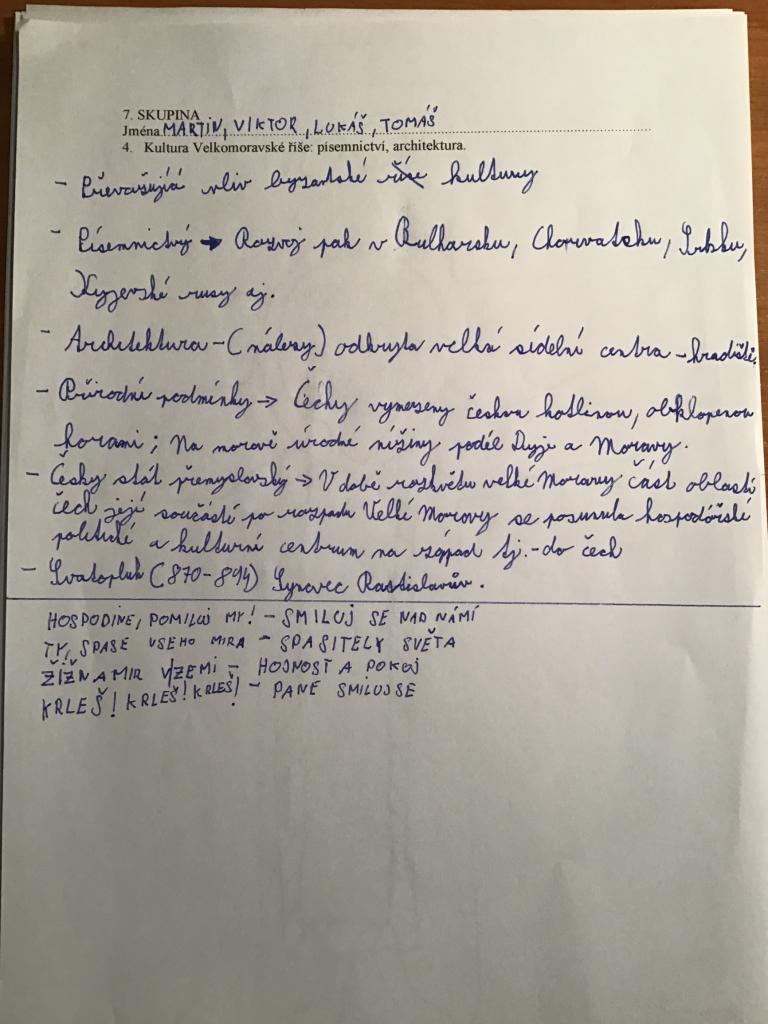 7. SKUPINA
Jména MARTIN, VIKTOR, LUKÁŠ, TOMÁŠ
4. Kultura Velkomoravské říše: písemnictví, architektura.
- Převažující vliv byzantské kultury
- Písemnictvý → Rozvoj pak v Bulharsku, Chorvatsku, Srbsku,
Kyjevské rusy aj.
- Architektura - (nálezy) odkryta velká sídelní centra - hradiště.
- Přírodní podmínky → Čéchy vymezeny českou kotlinou, obklopenou
horami; Na moravě úrodné nížiny podél Dyje a Moravy.
- Česky stát přemyslovský → V době rozkvětu velké Moravy část oblasti
čech její součástí po rozpadu Velké Moravy se posunula hospodářské
politické a kulturní centrum na západ tj. - do čech
- Svatopluk (870-894) Synovec Rastislavův.
HOSPODINE, POMILUJ MY! - SMILUJ SE NAD NÁMÍ
TY, SPASE VSEHO MIRA - SPASITELY SVĚTA
ŽÍZŇ A MIR V ZEMI - HOJNOST A POKOJ
KRLEŠ! KRLEŠ! KRLEŠ! - PANE SMILUJ SE